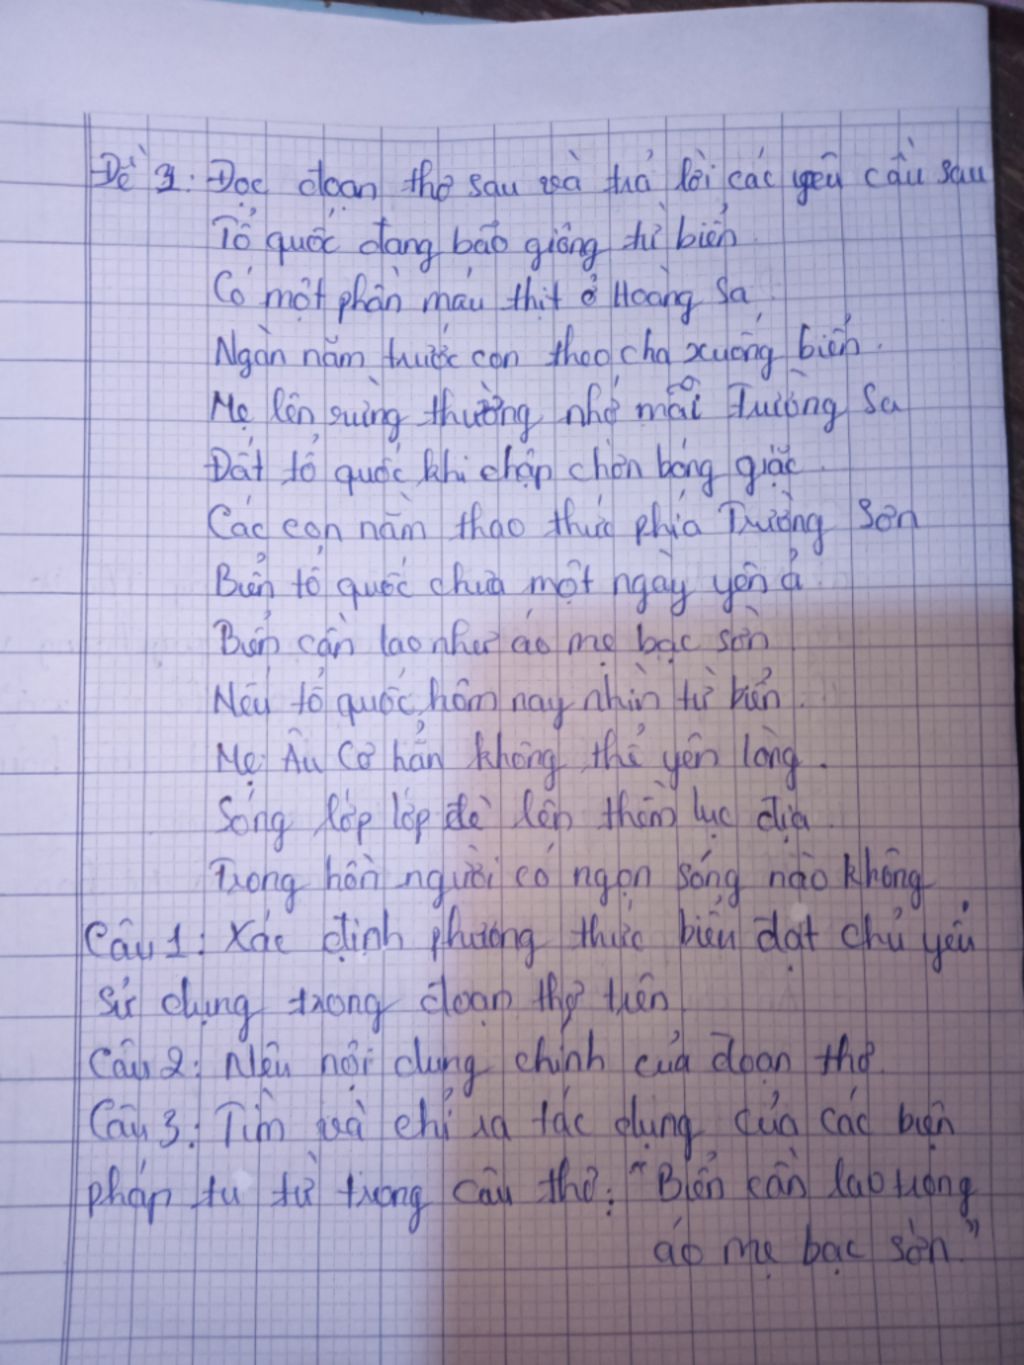 Đề 3: Đọc đoạn thơ sau và trả lời các yêu cầu sau
Tổ quốc đang bão giông từ biển.
Có một phần máu thịt ở Hoàng Sa.
Ngàn năm trước con theo cha xuống biển.
Mẹ lên rừng thường nhớ mãi Trường Sa
Đất tổ quốc khi chập chờn bóng giặc.
Các con nằm thao thức phía Trường Sơn
Biển tổ quốc chưa một ngày yên ả.
Biển cần lao như áo mẹ bạc sờn
Nếu tổ quốc hôm nay nhìn từ biển.
Mẹ Âu Cơ hẳn không thể yên lòng.
Sóng lớp lớp đè lên thềm lục địa.
Trong hồn người có ngọn sóng nào không
Câu 1: Xác định phương thức biểu đạt chủ yếu
sử dụng trong đoạn thơ trên
Câu 2: Nêu nội dung chính của đoạn thơ.
Câu 3: Tìm và chỉ ra tác dụng của các biện
pháp tu từ trong câu thơ: "Biển cần lao trong
áo mẹ bạc sờn."